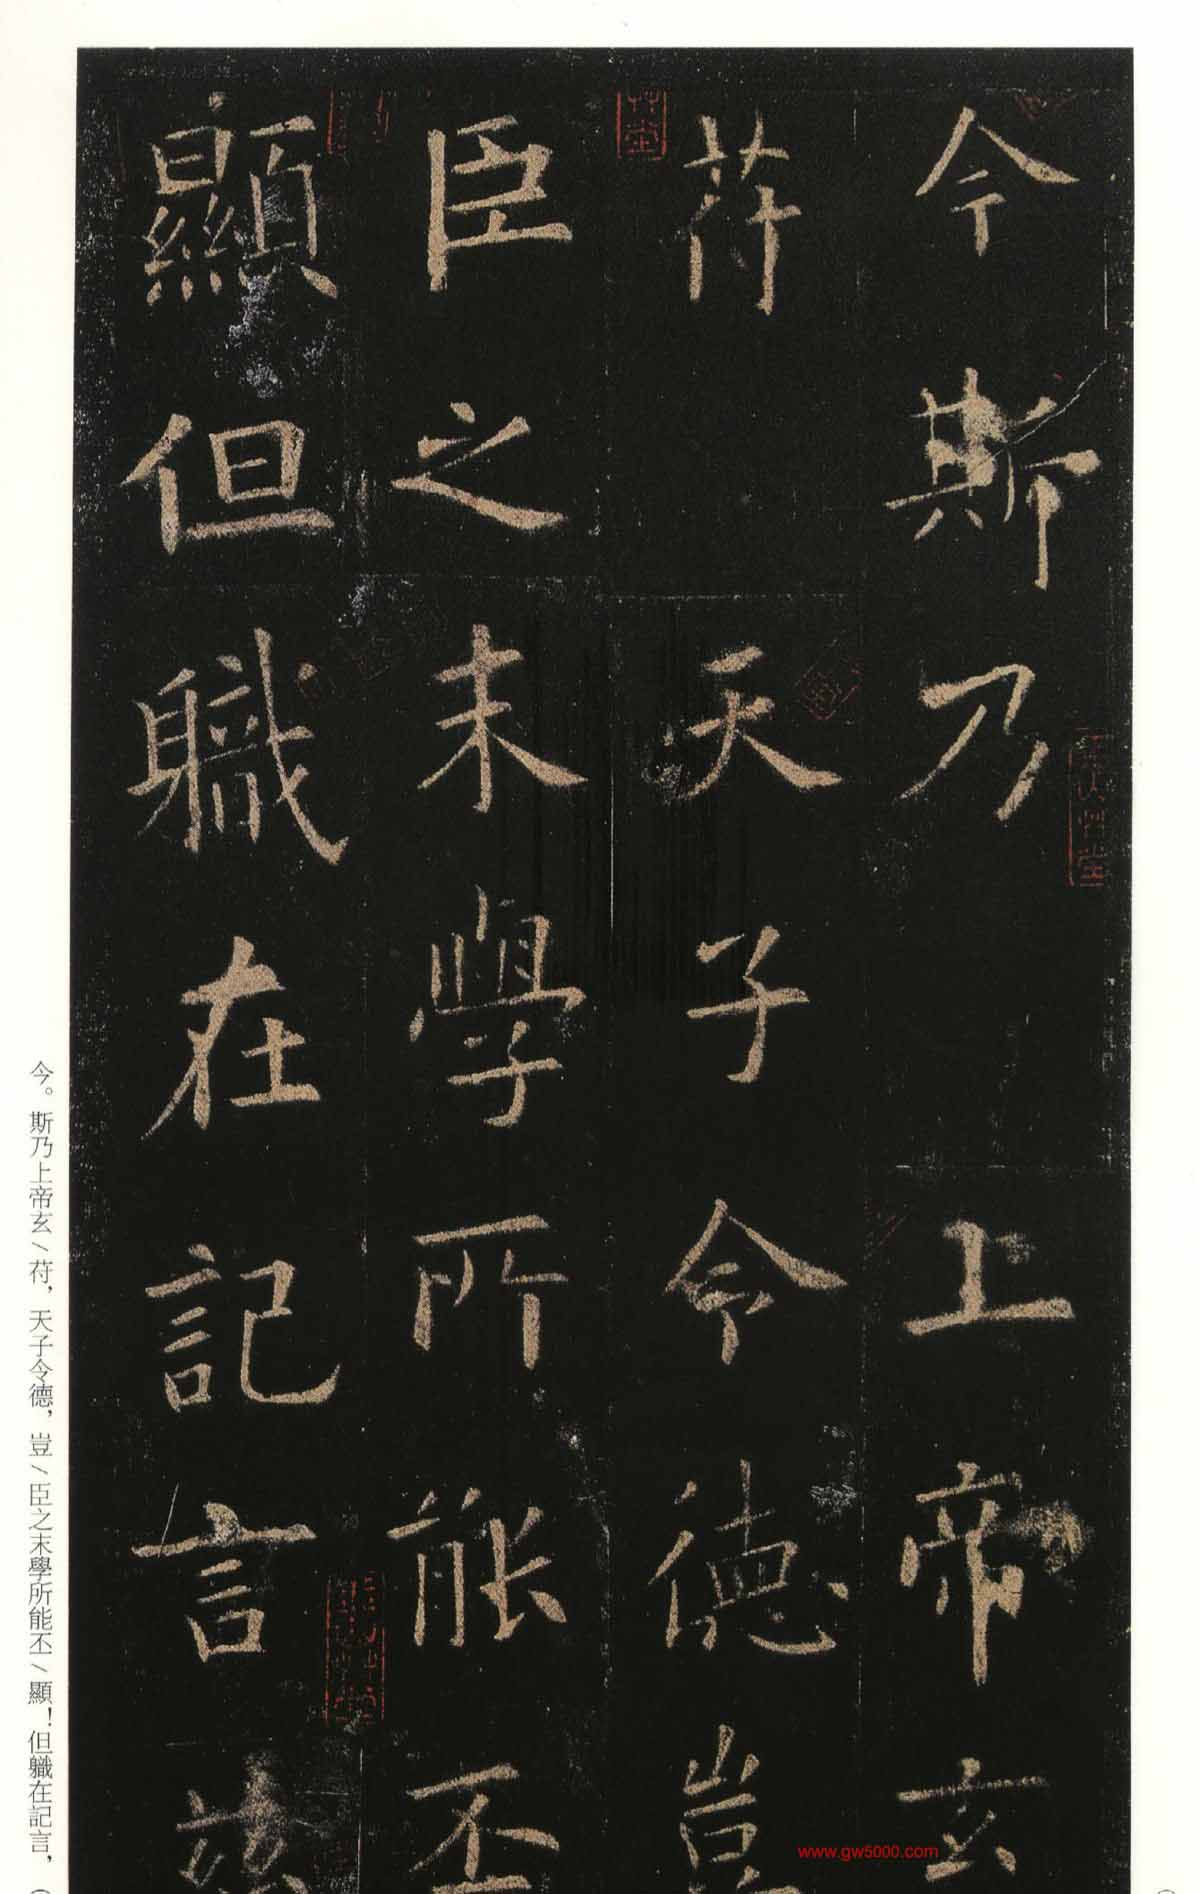 今斯乃上帝玄
苻天子令德豈
臣之末學所能丕
顯但軄在記言
今。斯乃上帝玄╱苻，天子令德，豈╱臣之末學所能丕╱顯！但軄在記言，（
www.gw5000.com